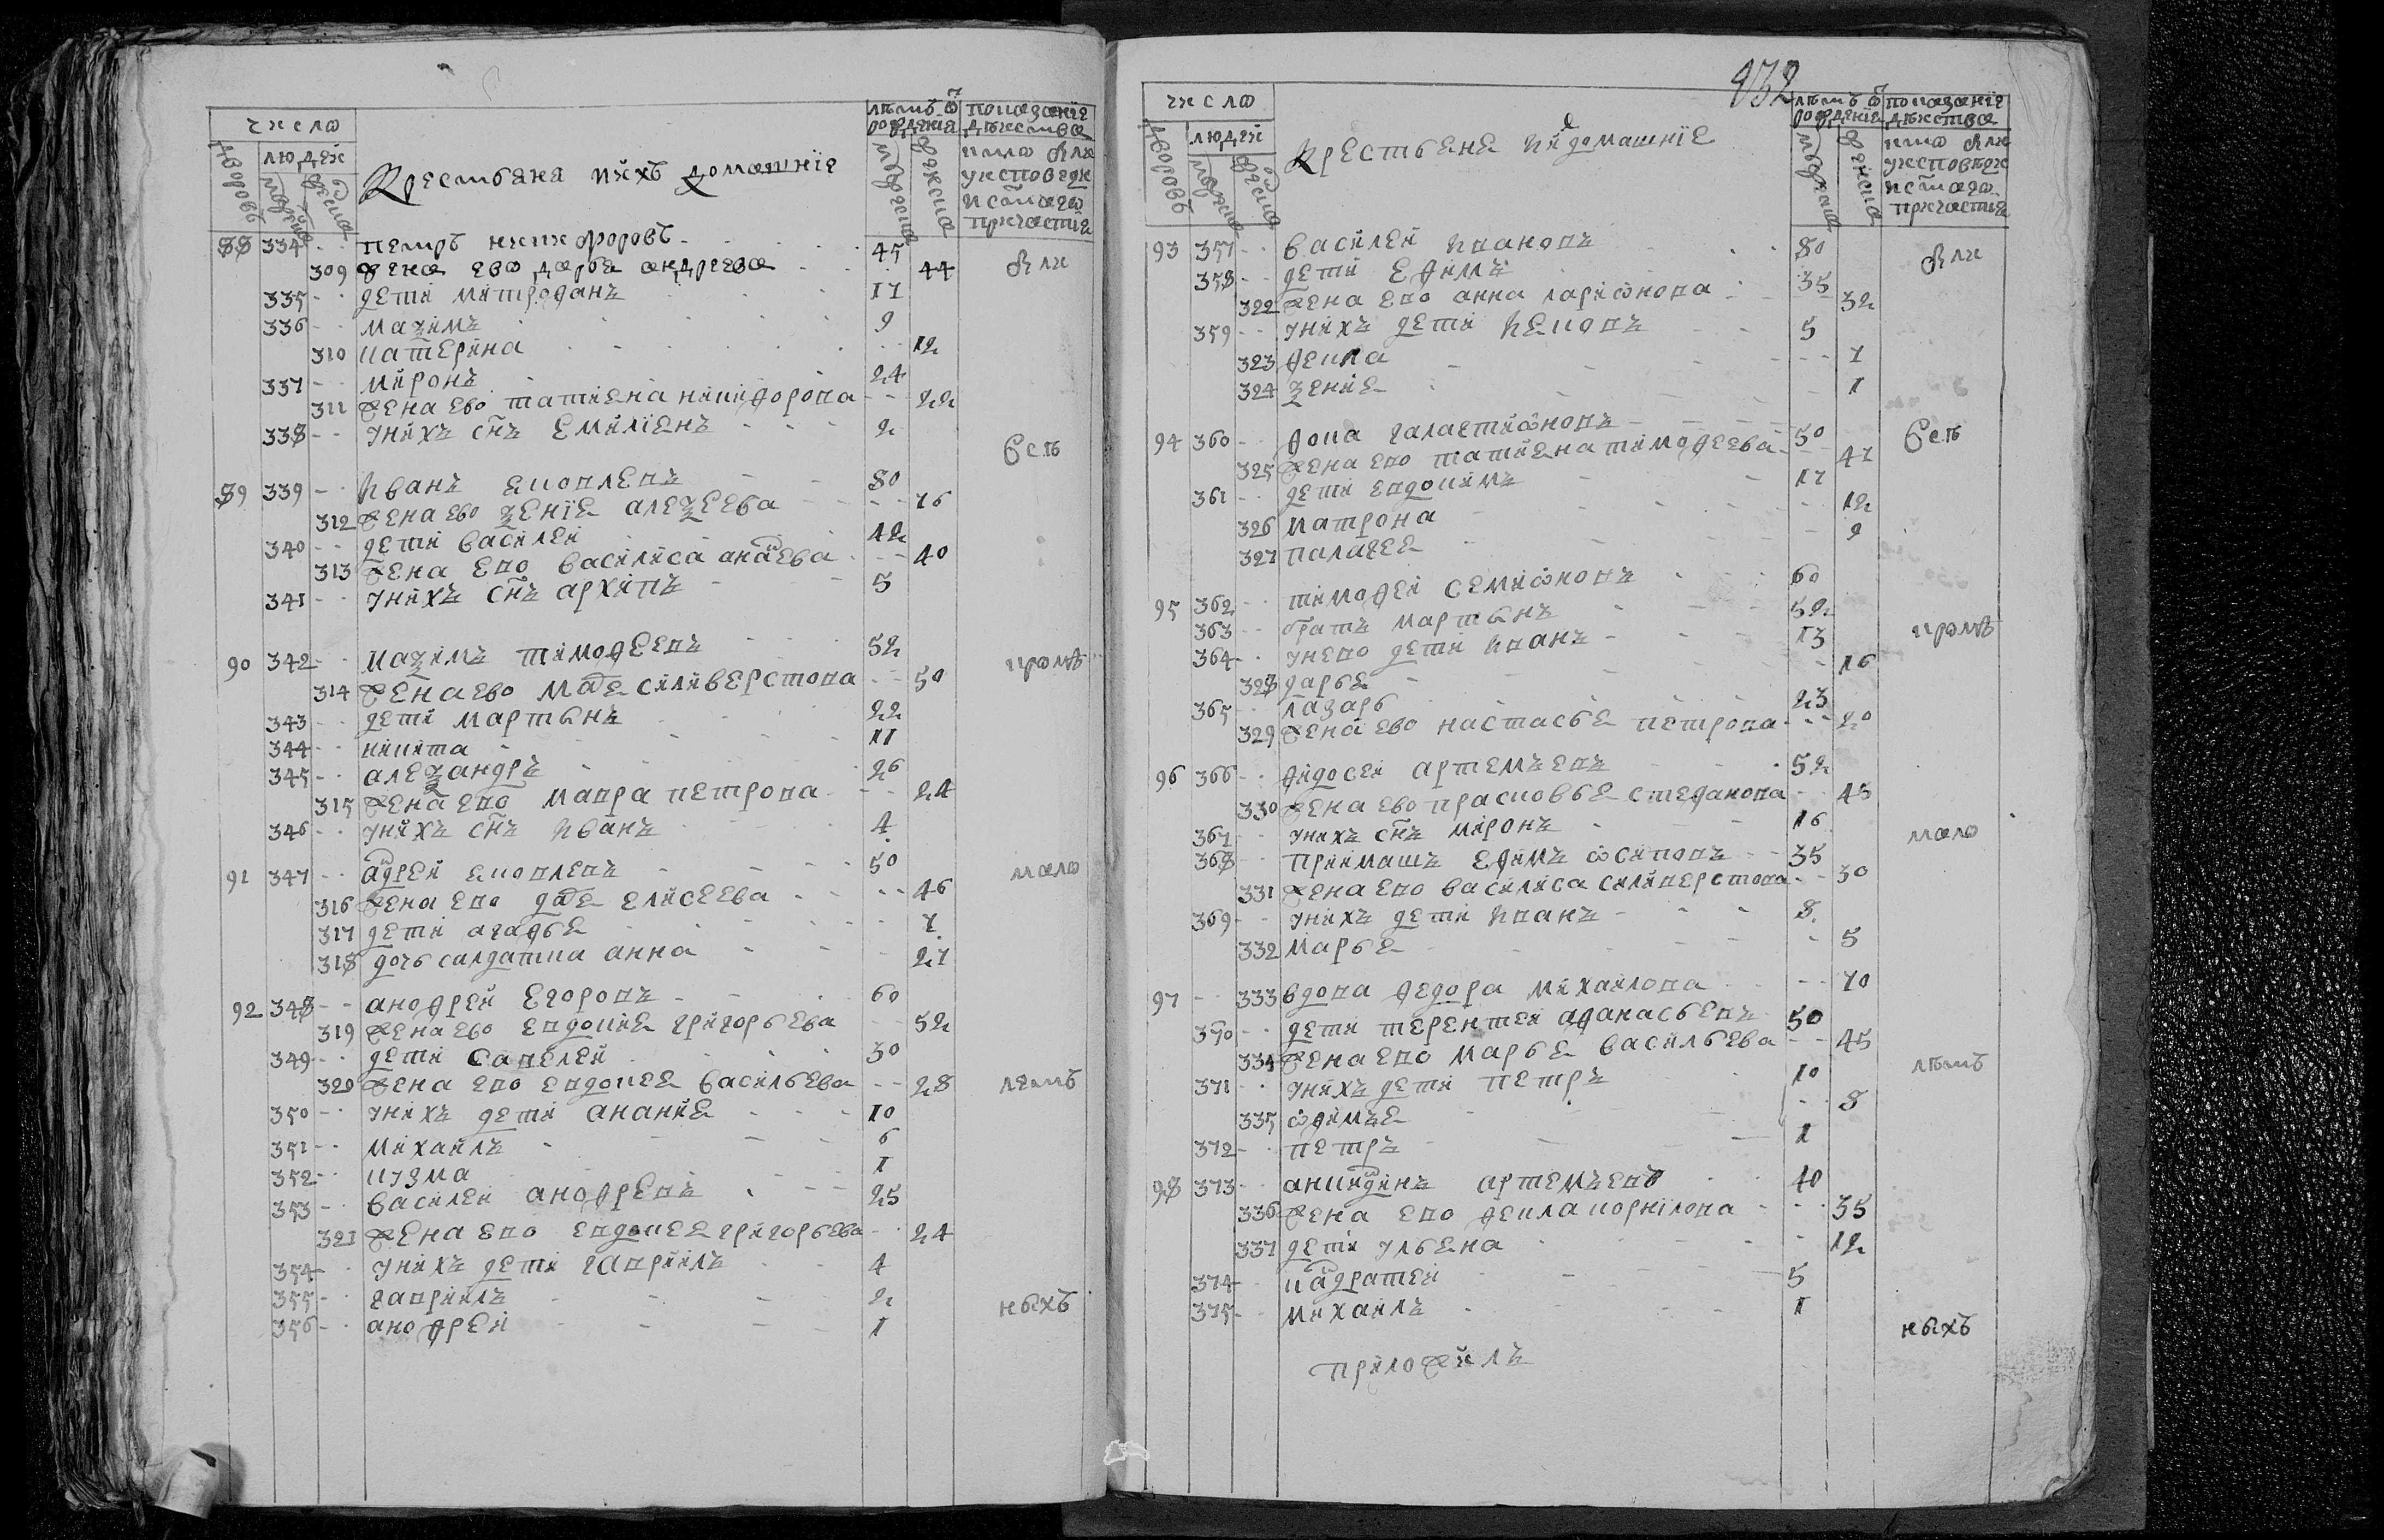 число
людей
дворовъ
мужеска
женска
Крестьяна ихъ домашнїе
лѣтъ ѿ рожденїя
мужеска
женска
показанїе
дѣиства
кто были
у исповеди
и с͠таго
причастїя
88 334 петръ никифоровъ 45
309 жена ево дарья андреева 44 были
335 дети митрофанъ 17
336 маѯимъ 9
310 катерина 12
337 миронъ 24
311 жена ево татияна никифорова 22
338 у них с͠нъ емилїенъ 2
Всѣ
89 339 Иванъ яковлевъ 80
312 жена ево ѯенїя алеѯеева 76
340 дети василеи 42
313 жена ево василиса ананьева 40
341 у нихъ с͠нъ архипъ 5
90 342 маѯимъ тимофеевъ 52
314 жена ево маря силиверстова 50 кромѣ
343 дети мартынъ 22
344 никита 11
345 алеѯандръ 26
315 жена ево мавра петрова 24
346 у нихъ с͠нъ Иванъ 4
91 347 андреи яковлевъ 50
316 жена ево даря елисеева 46 мало
317 дети агафья 7
318 дочь салдатка анна 27
92 348 анофреи егоровъ 60
319 жена ево евдокия григорьева 52
349 дети савелеи 30
320 жена ево евдокея васильева 28 летъ
350 у нихъ дети анания 10
351 михаилъ 6
352 кузма 1
353 василеи анофревъ 25
321 жена ево евдокея григорьева 24
354 у нихъ дети гавриилъ 4
355 гавриилъ 2
356 анофреи 1 ныхъ
932
число
людей
дворовъ
мужска
женска
Крестьяне и ихъ домашнїе
лѣтъ ѿ рожденїя
мужеска
женска
показанїе
дѣиства
кто были
у исповеди
и с͠таго
причастия
93 357 василеи Ивановъ 80
358 дети ефимъ 35 были
322 жена ево анна лариѡнова 32
359 у нихъ дети Иековъ 5
323 фекла 7
324 ѯения 1
94 360 фока галактиѡновъ 50
325 жена ево татияна тимофеева 47 Всѣ
361 дети евдокимъ 17
326 матрона 12
327 палагея 9
95 362 тимофеи семиѡновъ 60
363 братъ мартынъ 52
364 у нево дети Иванъ 13 кромѣ
328 дарья 16
365 лазарь 23
329 жена ево настасья петрова 20
96 366 фидосеи артемъевъ 52
330 жена ево прасковья стефанова 45
367 у нихъ с͠нъ миронъ 16
368 приимашъ ефимъ ѡсиповъ 35 мало
331 жена ево василиса силиверстова 30
369 у нихъ дети Иванъ 8
332 марья 5
97 333 вдова федора михаилова 70
370 дети терентеи афанасьевъ 50
334 жена ево марья васильева 45
371 у нихъ дети петръ 10 лѣтъ
335 ѡфимъя 8
372 петръ 1
98 373 аникидинъ артемъевъ 40
336 жена ево фекла корнилова 35
337 дети ульяна 12
374 кандратеи 5
375 михаилъ 1
ныхъ
приложилъ